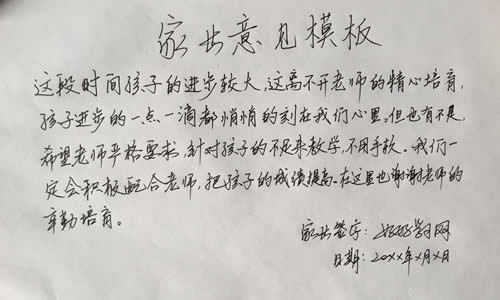 家长意见模板
这段时间孩子的进步较大,这离不开老师的精心培育,
孩子进步的一点一滴都悄悄的刻在我们心里。但也有不足,
希望老师严格要求,针对孩子的不足来教学,不用手软。我们一
定会积极配合老师,把孩子的成绩提高。在这里也谢谢老师的
辛勤培育。
家长签字:好好学习网
日期:20××年×月×日